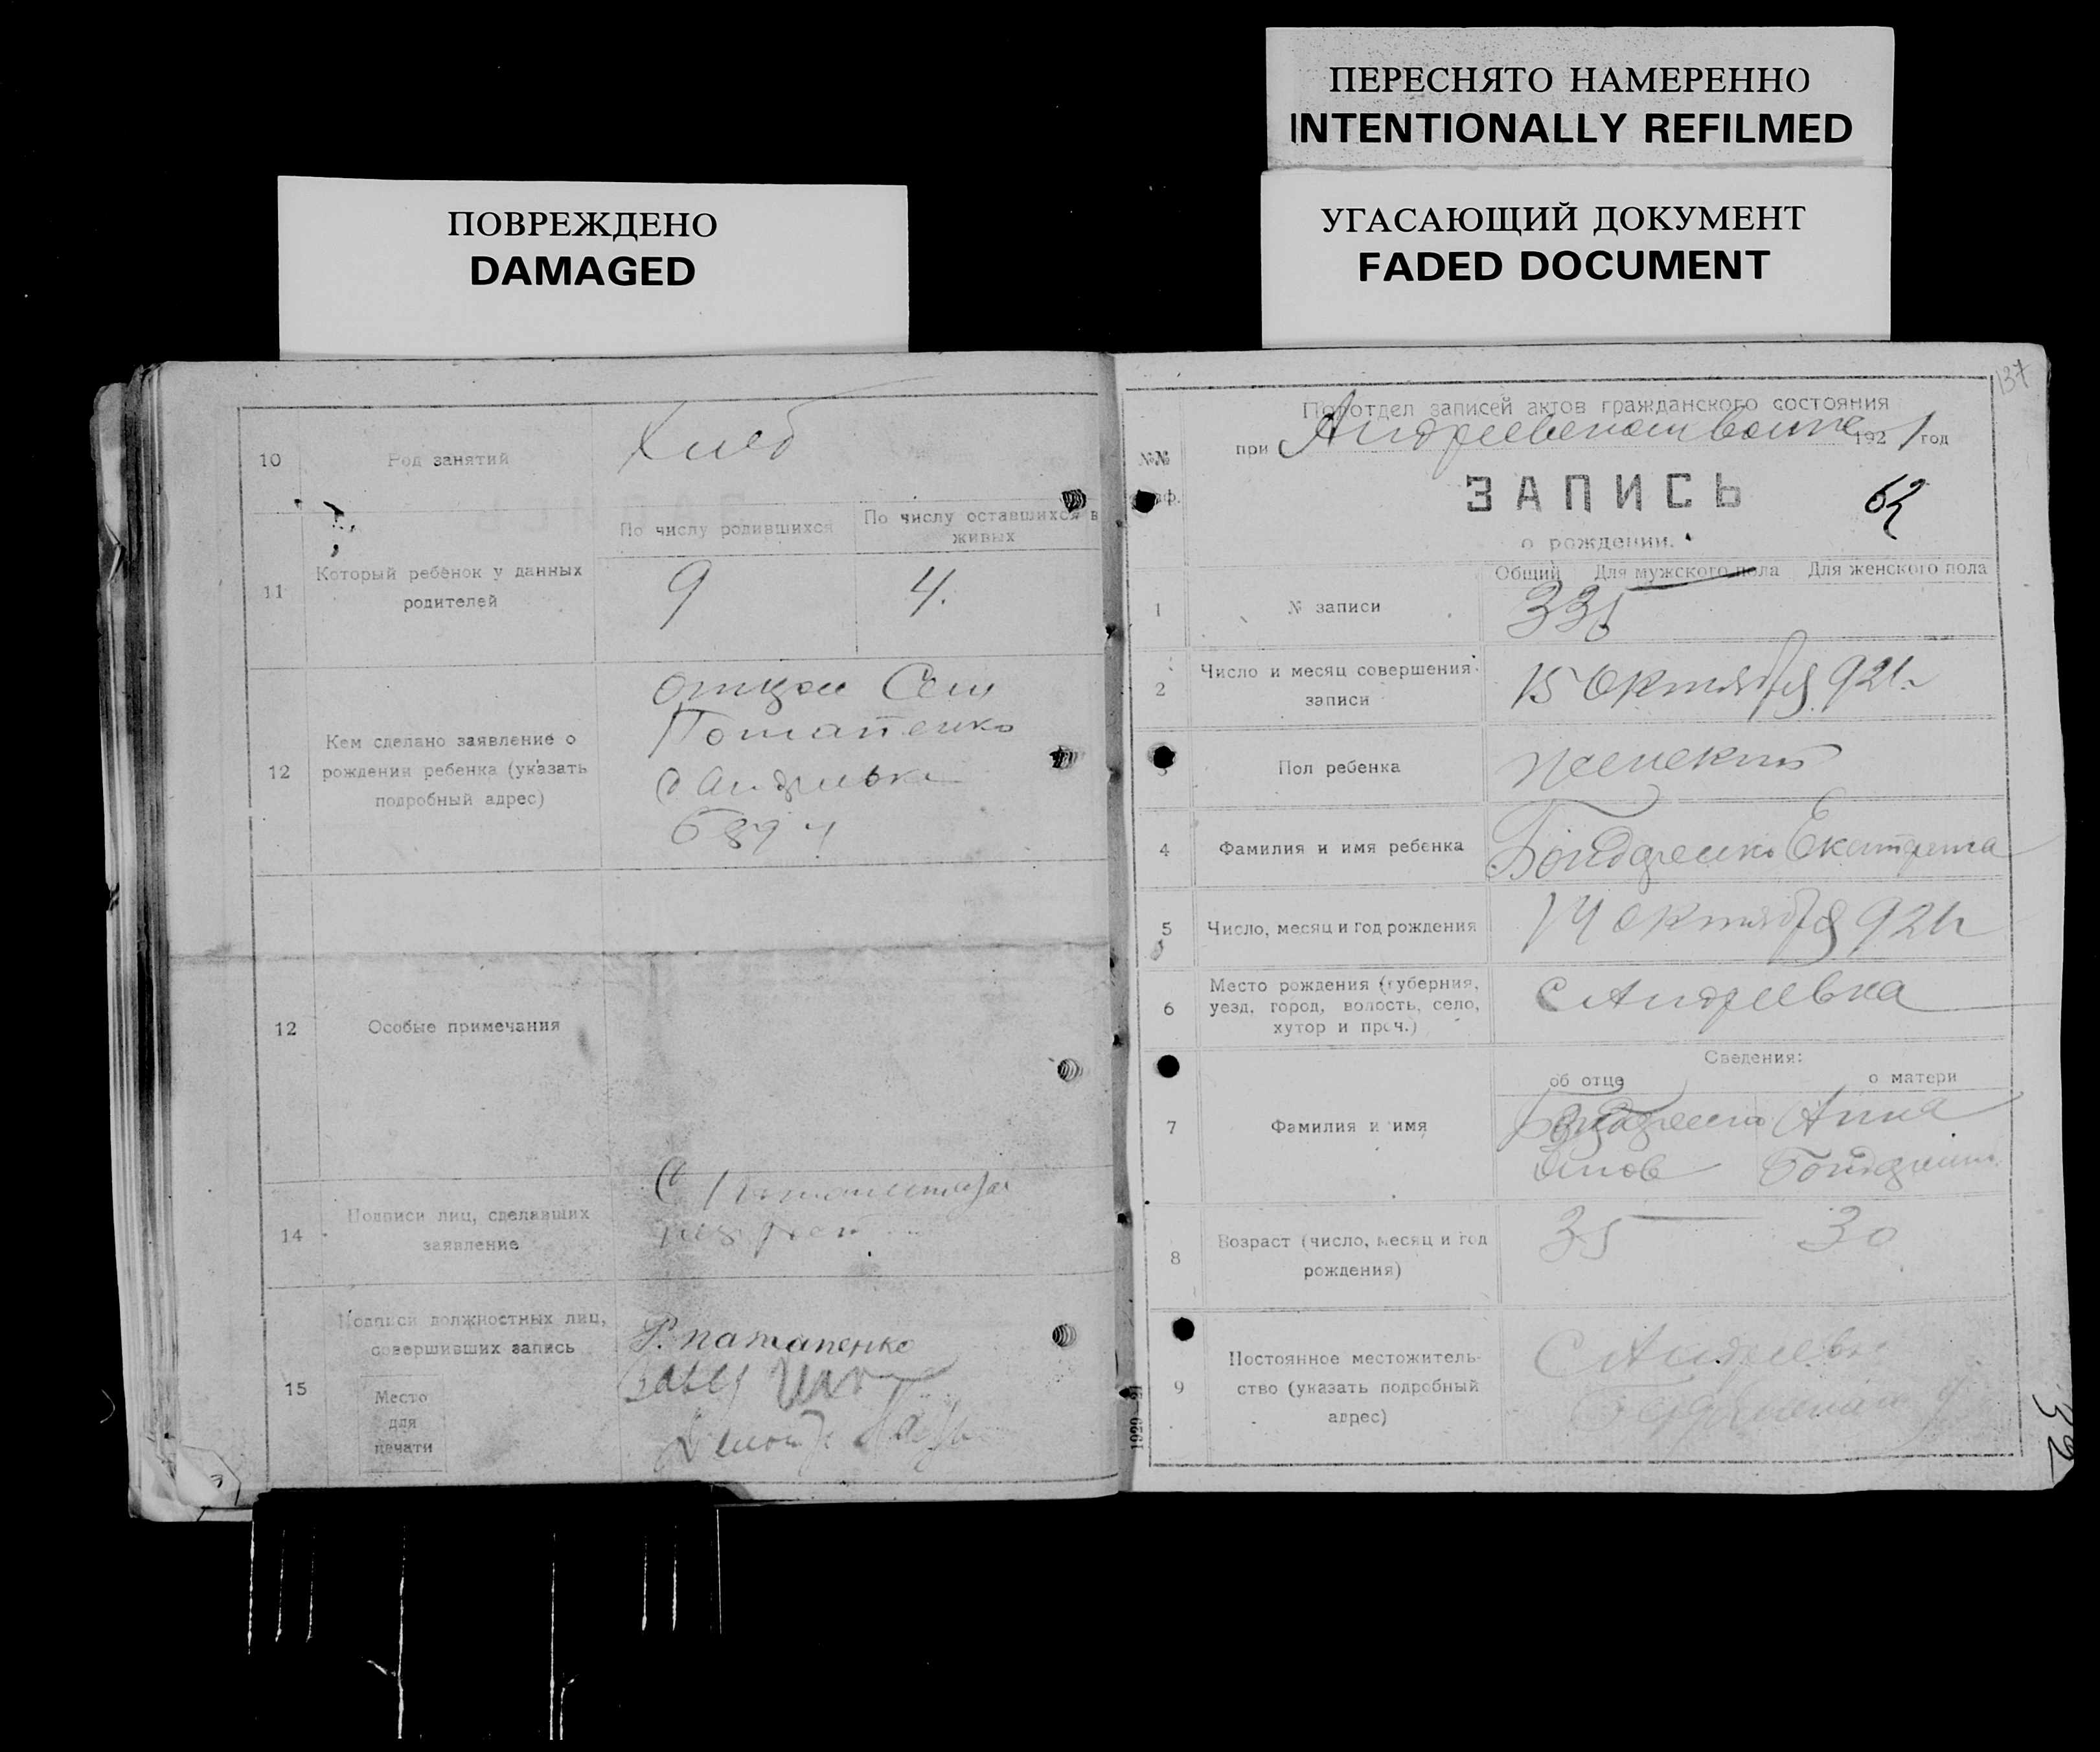 ПЕРЕСНЯТО НАМЕРЕННО
INTENTIONALLY REFILMED
ПОВРЕЖДЕНО
DAMAGED
УГАСАЮЩИЙ ДОКУМЕНТ
FADED DOCUMENT
10
Род занятий
Хлеб
11
Который ребенок у данных
родителей
По числу родившихся
По числу оставшихся в
живых
9
4.
12
Кем сделано заявление о
рождении ребенка (указать
подробный адрес)
отцом Сем
Потапенко
12
Особые примечания
14
Подписи лиц, сделавших
заявление
15
Подписи должностных лиц,
совершивших запись
Место
для
печати
Р. патапенко
137
Подотдел записей актов гражданского состояния
при Андреевском волисп 1921 год
№№
ЗАПИСЬ
62
о рождении.
Общий Для мужского пола Для женского пола
1
№ записи
335
2
Число и месяц совершения
записи
15 Октября 921 г
3
Пол ребенка
женский
4
Фамилия и имя ребенка
Бондаренко Екатерина
5
Число, месяц и год рождения
14 октября 921 г
6
Место рождения (губерния,
уезд, город, волость, село,
хутор и проч.)
С Андреевка
Сведения:
об отце
о матери
7
Фамилия и имя
Бондаренко
Анна
Бондаренко
8
Возраст (число, месяц и год
рождения)
35
30
9
Постоянное местожитель-
ство (указать подробный
адрес)
С Андреевка
1929—21
32